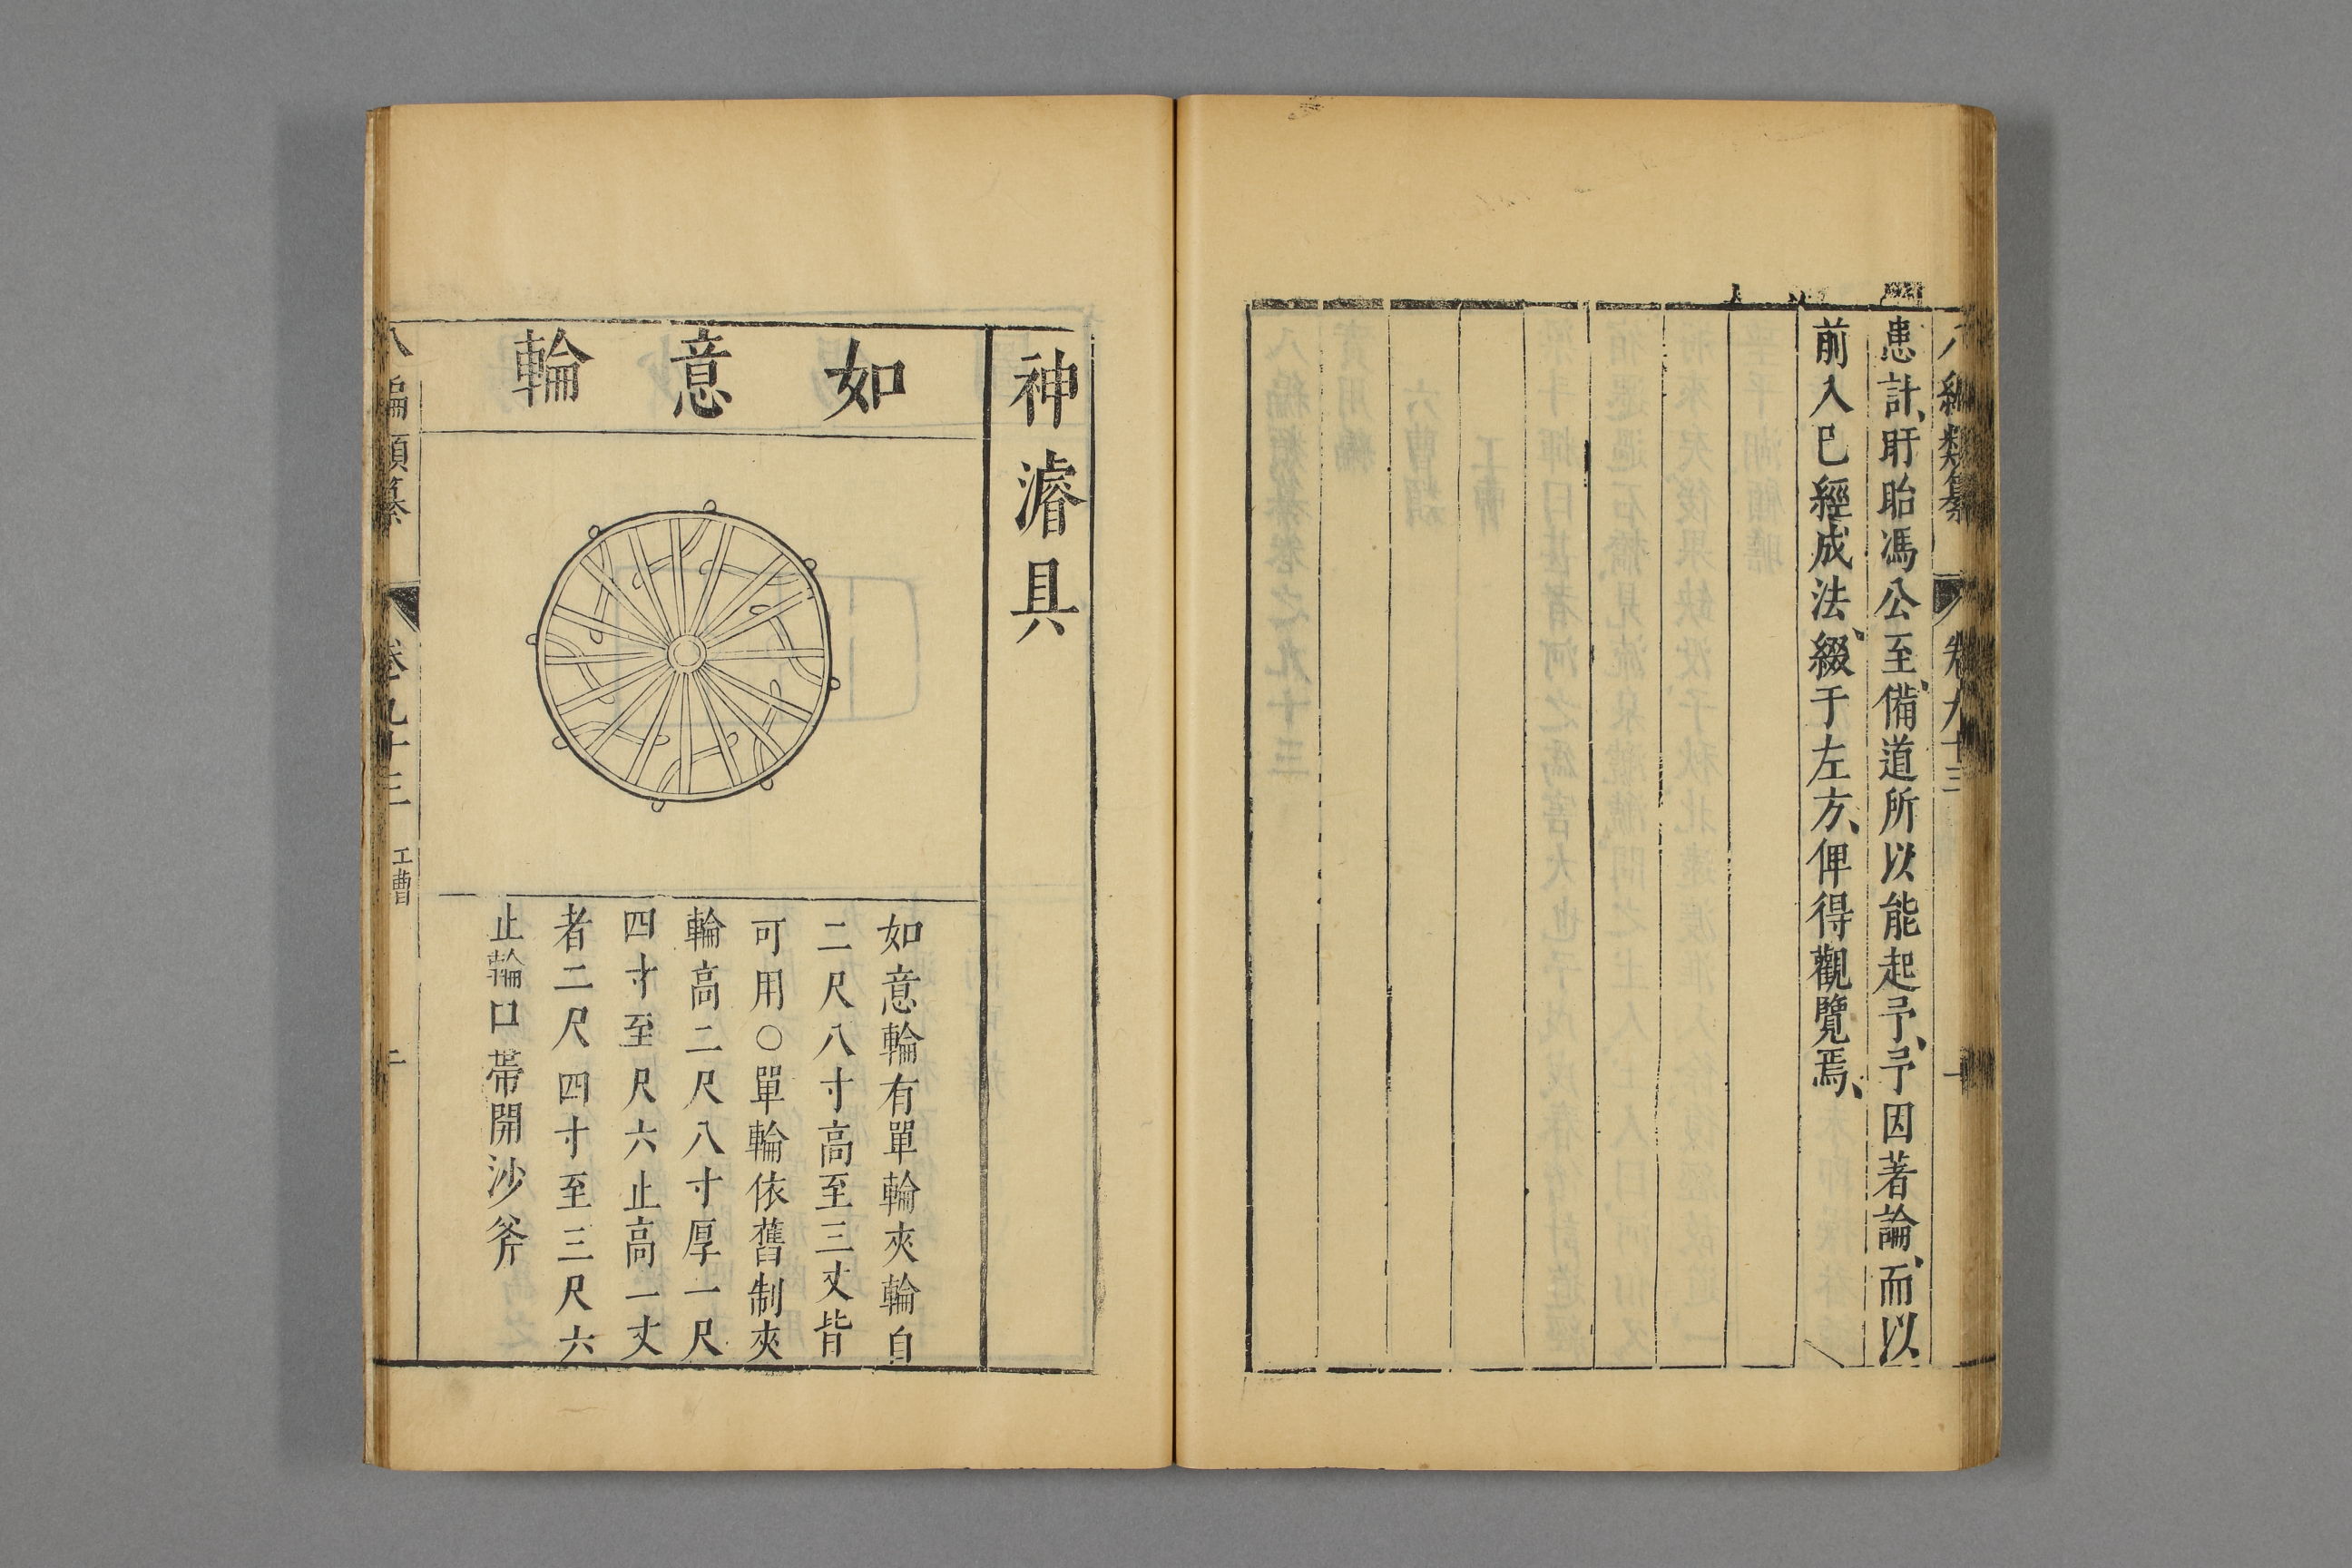 八編類纂 卷九十三 一
患計、盱眙馮公至、備道所以能起予、予因著論、而以
前入已經成法、綴于左方、俾得觀覽焉、
神濬具
如意輪
如意輪有單輪夾輪自
二尺八寸高至三丈皆
可用〇單輪依舊制夾
輪高二尺八寸厚一尺
四寸至尺六止高一丈
者二尺四寸至三尺六
止輪口帶開沙斧
八編類纂 卷九十三 工曹 二